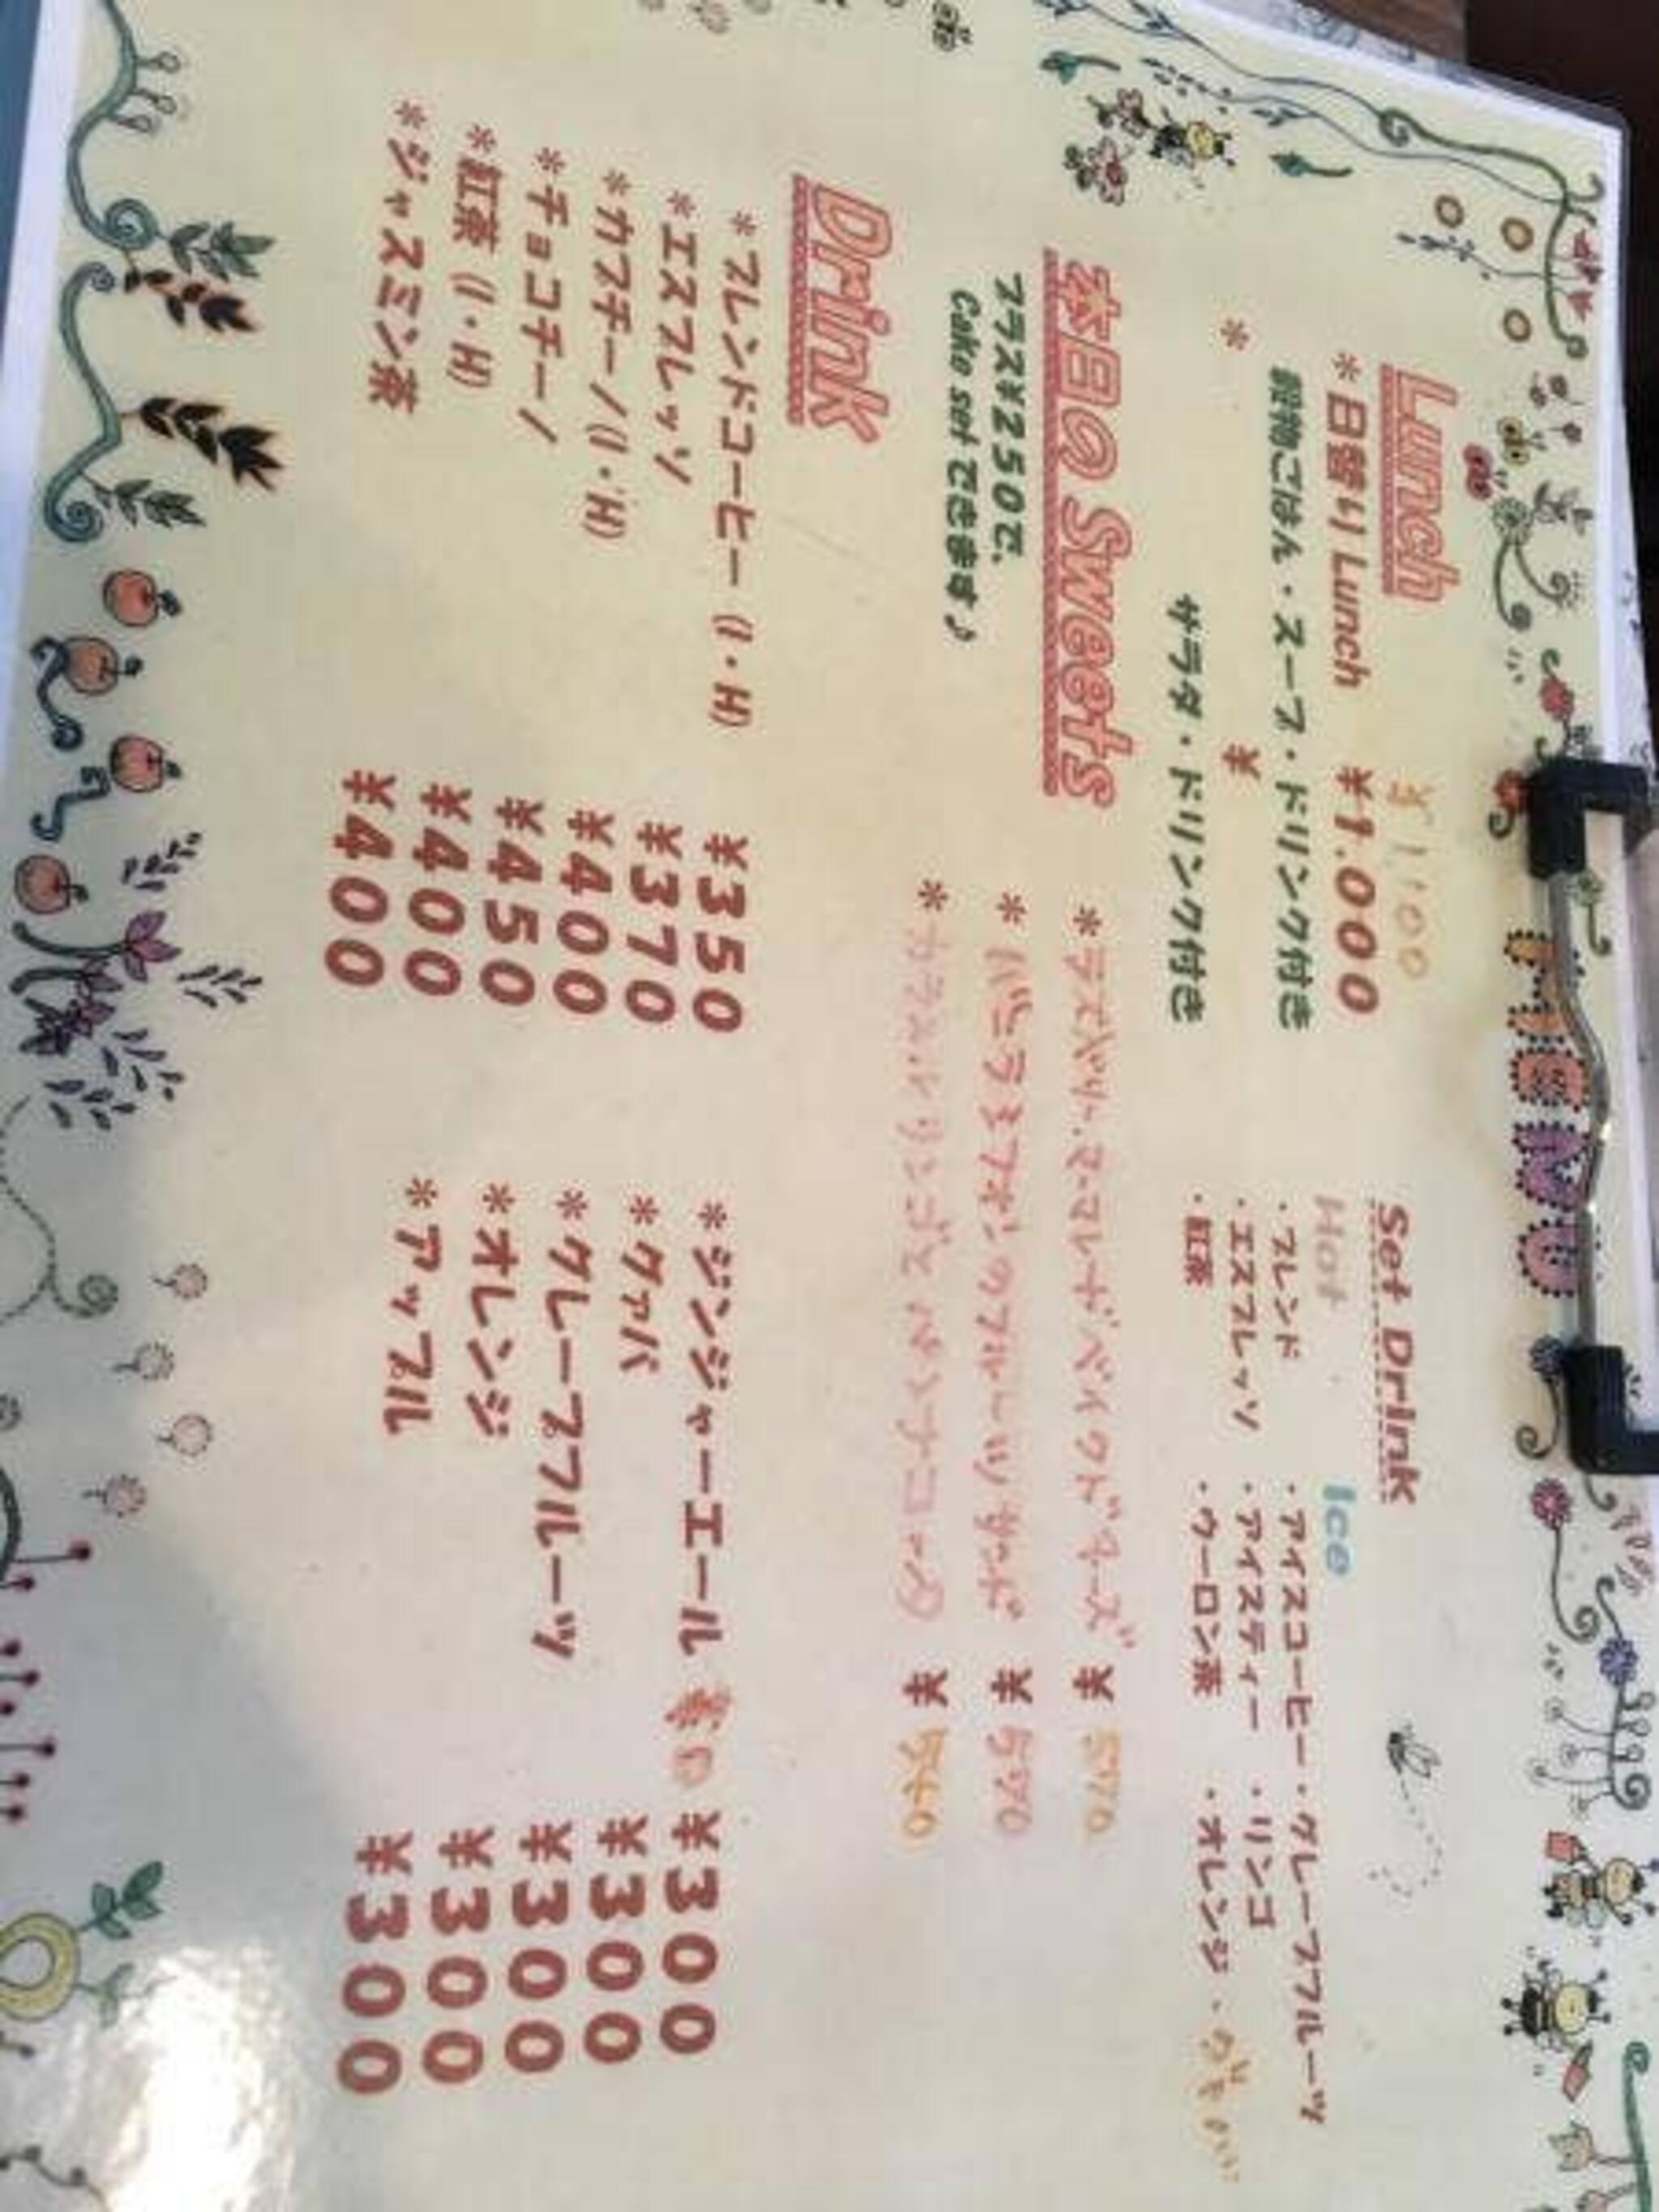 MENU
Lunch
¥1,100
*日替り Lunch ¥1.000
穀物ごはん・スープ・ドリンク付き
* ¥
サラダ・ドリンク付き
Set Drink
Hot
・ブレンド
・エスプレッソ
・紅茶
Ice
・アイスコーヒー ・グレープフルーツ
・アイスティー ・リンゴ
・ウーロン茶 ・オレンジ ・グァバ
本日の Sweets
プラス¥250で、
Cake set できます♪
*ラズベリー・マーマレードベイクドチーズ ¥570
*バニラシフォンのフルーツサンド ¥570
* ¥540
Drink
*ブレンドコーヒー (I・H) ¥350
*エスプレッソ ¥370
*カプチーノ (I・H) ¥400
*チョコチーノ ¥450
*紅茶 (I・H) ¥400
*ジャスミン茶 ¥400
*ジンジャーエール 辛口 ¥300
*グァバ ¥300
*グレープフルーツ ¥300
*オレンジ ¥300
*アップル ¥300